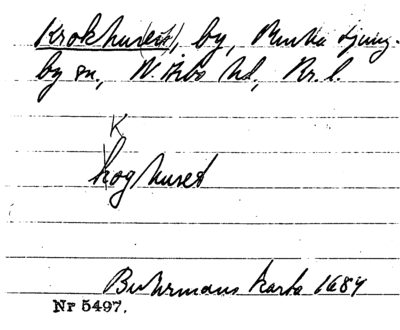 Krokhuset(s), by, Munka Ljung-
by sn, N. Åsbo hd, Kr. l.
K
koghuset
Buhrmans karta 1684
Nr 5497.